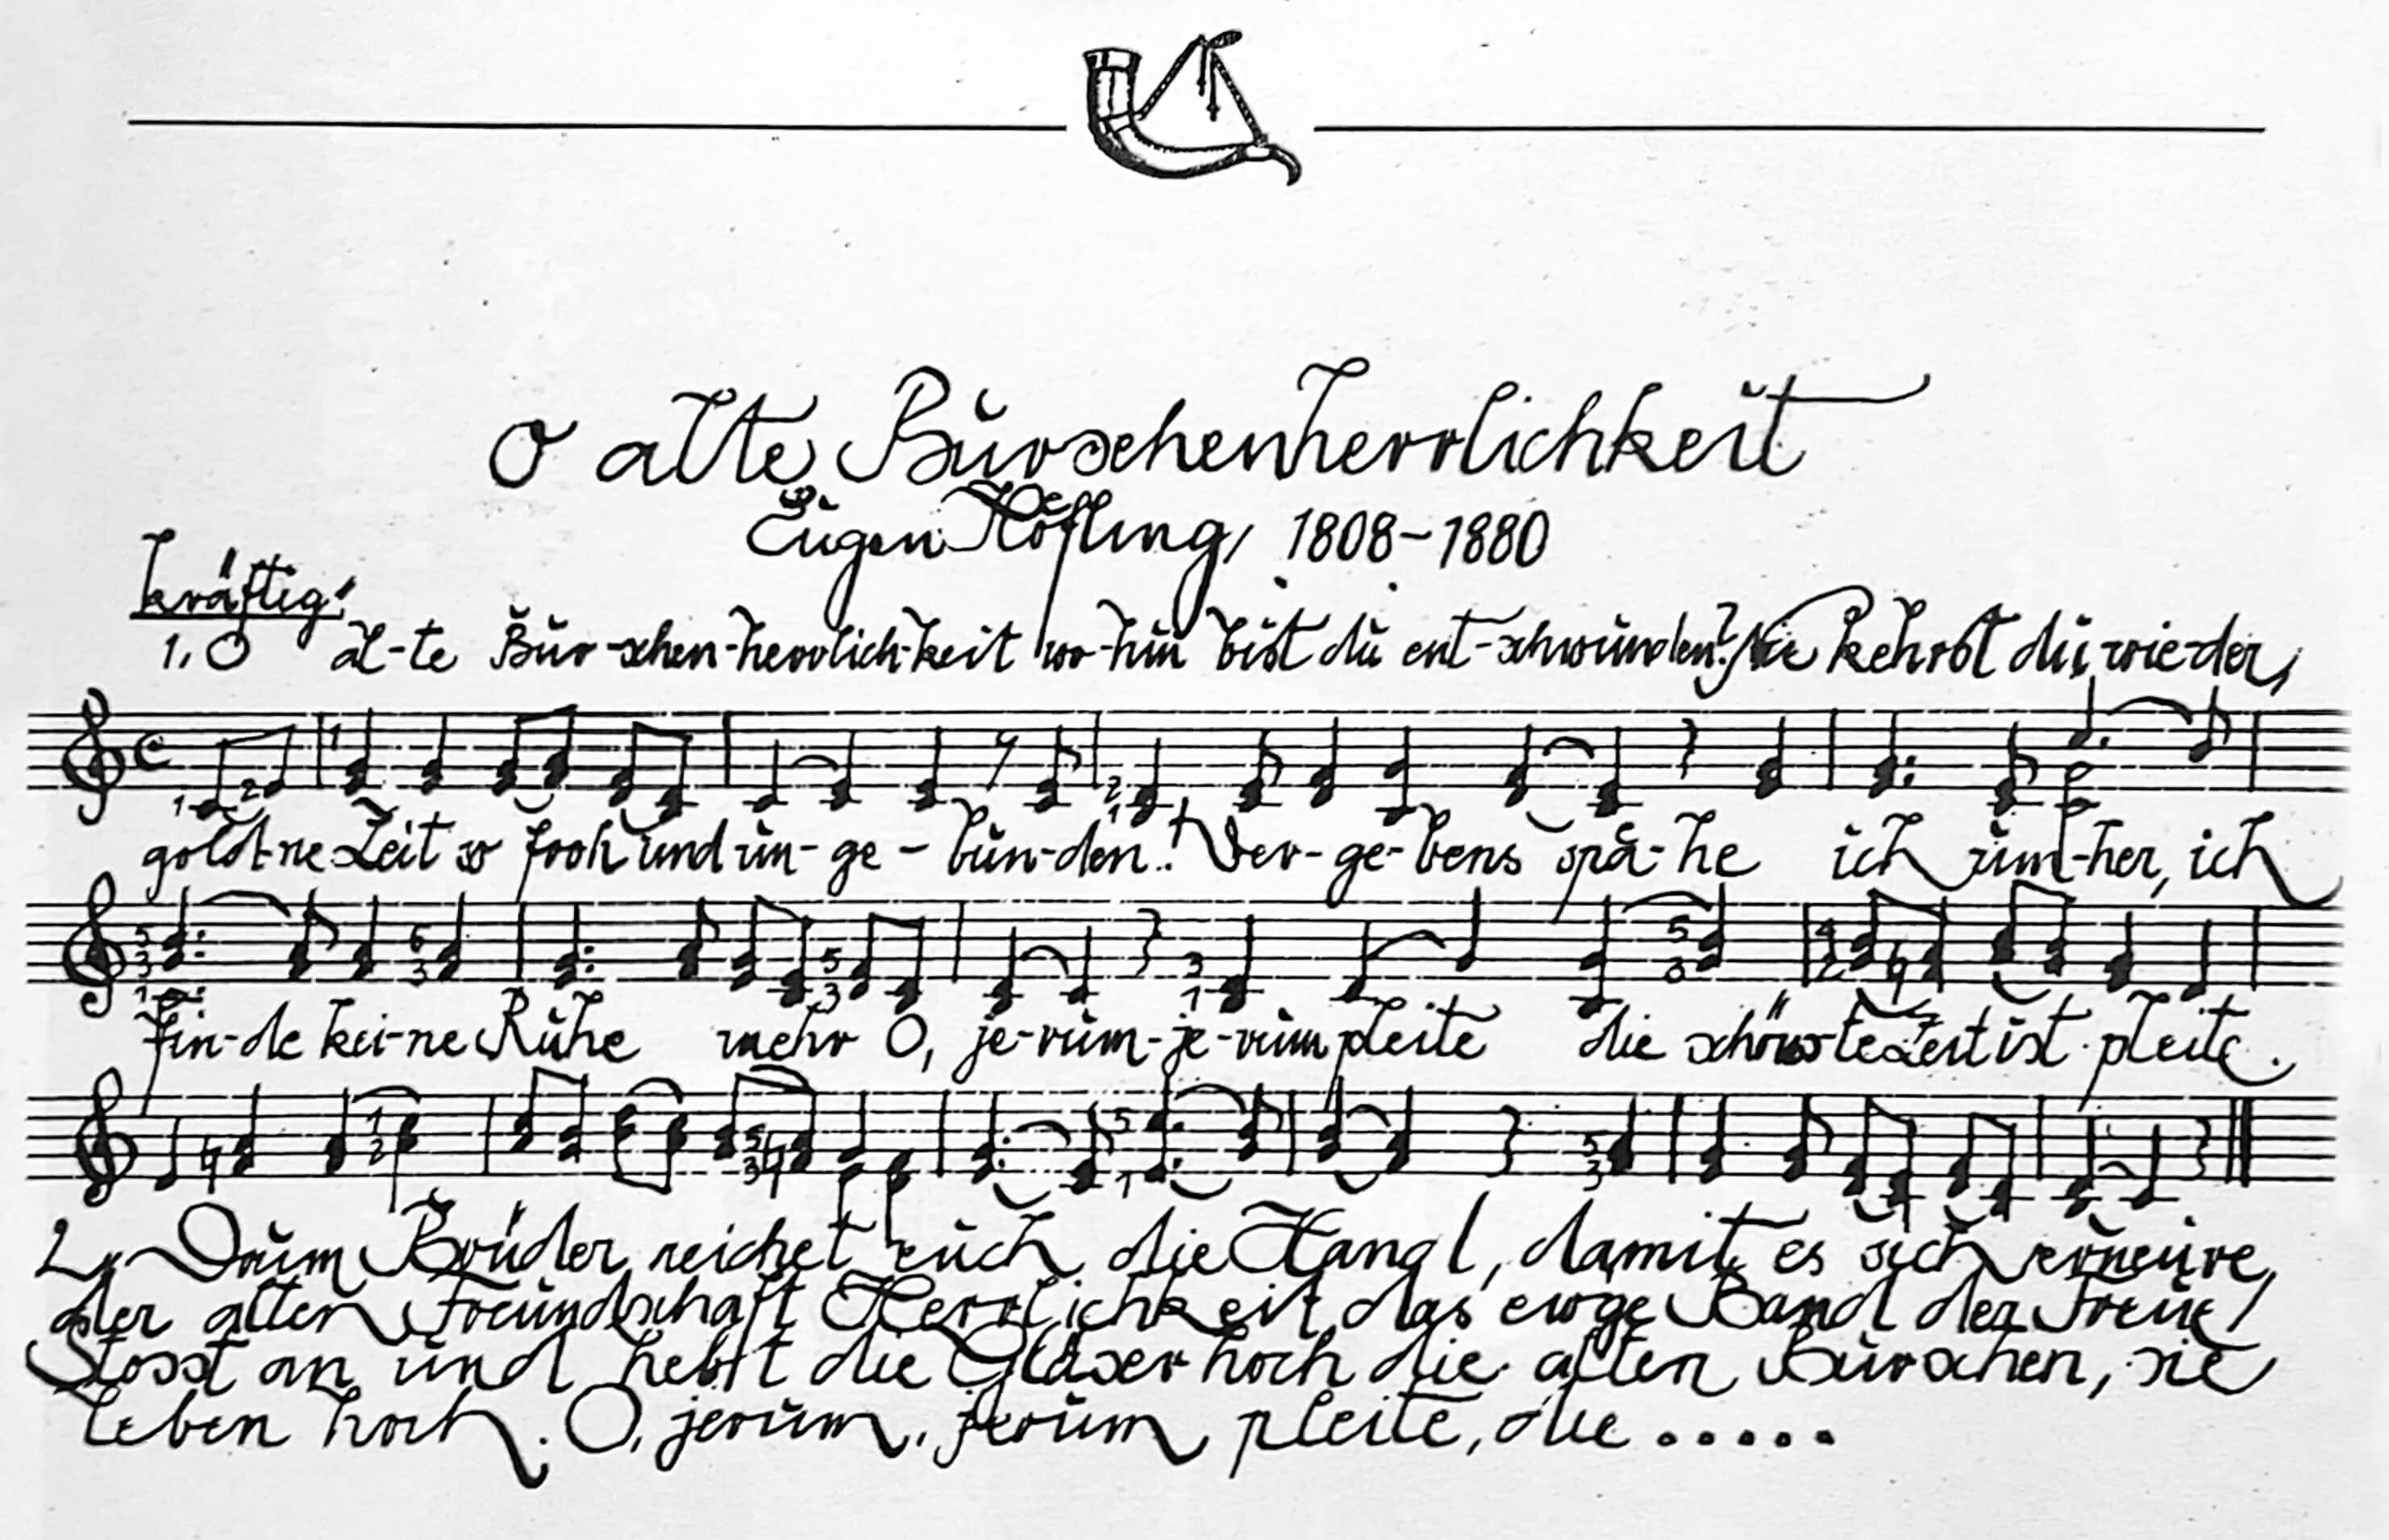 O alte Burschenherrlichkeit
Eugen Höfling, 1808-1880
kräftig!
1. O al-te Bur-schen-herrlich-keit wo-hin bist du ent-schwunden? Nie kehrst du wie-der,
gold-ne Zeit so froh und un-ge-bun-den! Ver-ge-bens spä-he ich um-her, ich
fin-de kei-ne Ruhe mehr O, je-rum-je-rum pleite die schöns-te Zeit ist pleite.
2. Drum Brüder reichet euch die Hand, damit es sich erneure,
der alten Freundschaft Herrlichkeit das ewge Band der Treue!
Stosst an und hebt die Gläser hoch die alten Burschen, sie
leben hoch. O, jerum, jerum pleite, die .....